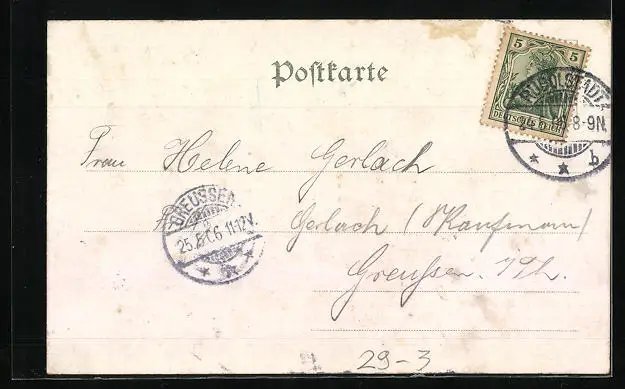 5 5
DEUTSCHES REICH
Postkarte
RUDOLSTADT
8-9N.
b
Frau Helene Gerlach
GREUSSEN
25.8.06. 11-12V.
Gerlach (Kaufmann)
Greussen. i/Th.
29-3